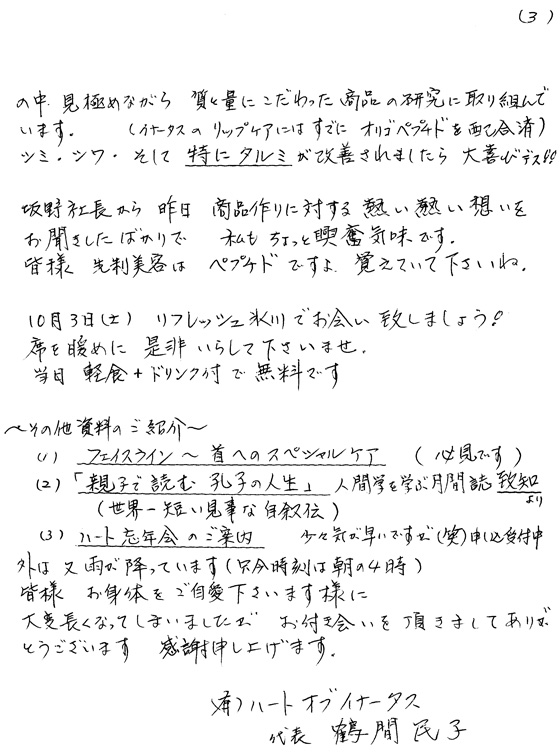 (3)
の中、見極めながら 質と量にこだわった商品の研究に取り組んで
います。 (イナータスのリップケアにはすでに オリゴペプチドを配合済)
シミ・シワ・そして 特にタルミが改善されましたら 大喜びデス!!
坂野社長から 昨日 商品作りに対する 熱い熱い想いを
お聞きしたばかりで 私もちょっと興奮気味です。
皆様 先制美容は ペプチドですよ 覚えていて下さいね。
10月3日(土) リフレッシュ氷川でお会い致しましょう!
席を暖めに 是非いらして下さいませ。
当日 軽食+ドリンク付で無料です
~その他資料のご紹介~
(1) フェイスライン~首へのスペシャルケア (必見です)
(2)「親子で読む 孔子の人生」 人間学を学ぶ月間誌 致知より
(世界一短い見事な自叙伝)
(3) ハート忘年会のご案内 少々気が早いですが(笑)申し込受付中
外は又雨が降っています(只今時刻は朝の4時)
皆様 お身体をご自愛下さいます様に
大変長くなってしまいましたが お付き会いを頂きましてありが
とうございます 感謝申し上げます。
(有)ハート オブ イナータス
代表 鶴間 民子